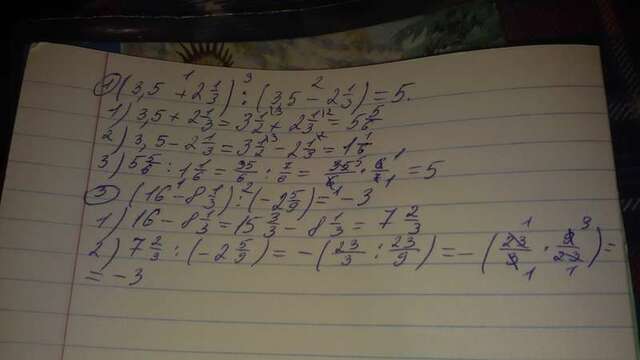 ① (3,5 +¹ 2 1/3) :³ (3,5 −² 2 1/3) = 5.
1) 3,5 + 2 1/3 = 3 1/2 + 2 1/3 = 5 5/6
2) 3,5 − 2 1/3 = 3 1/2 − 2 1/3 = 1 1/6
3) 5 5/6 : 1 1/6 = 35/6 : 7/6 = 35/6 · 6/7 = 5
③ (16 −¹ 8 1/3) :² (−2 5/9) = −3
1) 16 − 8 1/3 = 15 3/3 − 8 1/3 = 7 2/3
2) 7 2/3 : (−2 5/9) = −(23/3 : 23/9) = −(23/3 · 9/23) =
= −3